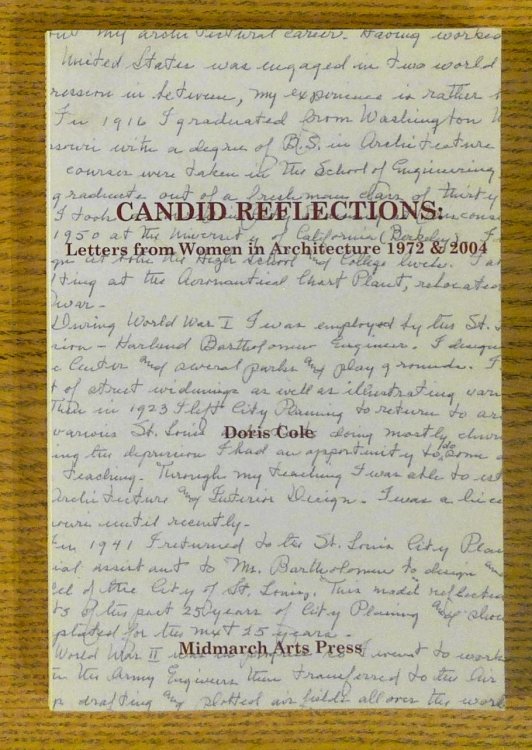 my architectural career. Having worked
United States was engaged in two world
ression in between, my experience is rather
In 1916 I graduated from Washington
souri with a degree of B.S. in Architecture
courses were taken in the School of Engineering
graduate out of a freshman class of thirty
CANDID REFLECTIONS:
I took
1950 at the University of California (Berkeley).
Letters from Women in Architecture 1972 & 2004
High School and College levels.
ting at the Aeronautical Chart Plant, relocated
war-
During World War I I was employed by the St.
sion - Harland Bartholomew Engineer. I design
c Center and several parks and play grounds.
t of street widenings as well as illustrating
Then in 1923 I left City Planning to return to ar
various St. Louis doing mostly
Doris Cole
ing the depression I had an opportunity to do some
teaching. Through my teaching I was able to
Architecture and Interior Design. I was a lice
until recently-
In 1941 I returned to the St. Louis City Plan
ial assistant to Mr. Bartholomew to design and
el of the City of St. Louis. This model reflected
ts of the past 25 years of City Planning and show
for the next 25 years-
Midmarch Arts Press
World War II was in I went to work
in the Army Engineers then transferred to the Air
n drafting and plotted air fields all over the world